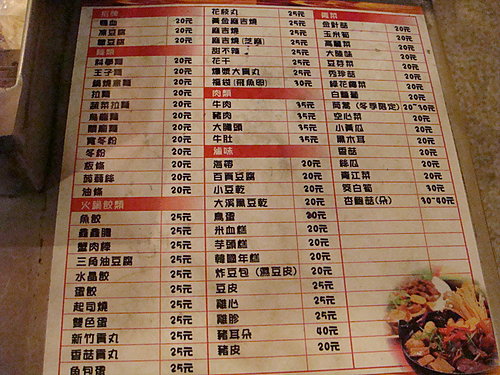 招牌
鴨血 20元
凍豆腐 20元
臭豆腐 20元
麵類
科學麵 20元
王子麵 20元
鍋燒意麵 20元
拉麵 20元
蔬菜拉麵 20元
烏龍麵 20元
關廟麵 20元
寬冬粉 20元
冬粉 20元
板條 20元
蒟蒻絲 20元
油條 20元
火鍋餃類
魚餃 25元
鑫鑫腸 25元
蟹肉棒 25元
三角油豆腐 25元
水晶餃 25元
蛋餃 25元
起司燒 25元
雙色蛋 25元
新竹貢丸 25元
香菇貢丸 25元
魚包蛋 25元
花枝丸 25元
黃金麻吉燒 25元
麻吉燒 25元
麻吉燒(芝麻) 25元
甜不辣 25元
花干 25元
爆漿大貢丸 25元
福袋(飛魚卵) 30元
肉類
牛肉 35元
豬肉 35元
大腸頭 35元
牛肚 35元
滷味
海帶 20元
百頁豆腐 20元
小豆乾 20元
大溪黑豆乾 20元
鳥蛋 20元
米血糕 20元
芋頭糕 20元
韓國年糕 20元
炸豆包(濕豆皮) 20元
豆皮 25元
雞心 25元
雞胗 25元
豬耳朵 40元
豬皮 20元
青菜
金針菇 20元
玉米筍 20元
高麗菜 20元
大陸妹 20元
豆芽菜 20元
秀珍菇 20元
綠花椰菜 20元
白蘿蔔 20元
茼蒿(冬季限定) 20~30元
空心菜 20元
小黃瓜 20元
黑木耳 20元
香菇 20元
絲瓜 20元
青江菜 20元
茭白筍 30元
杏鮑菇(朵) 30~40元